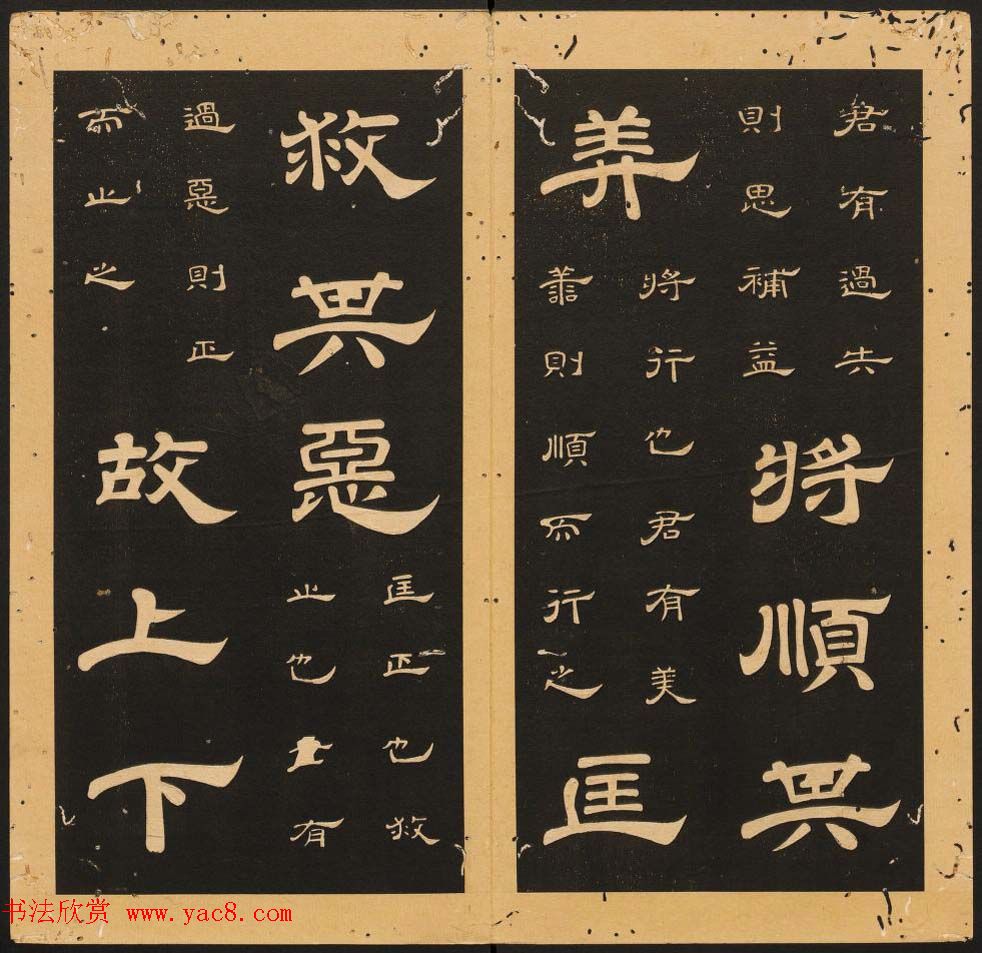 君有過失
則思補益
將順其
美
將行也君有美
善則順而行之
匡
救其惡
匡正也救
止也有
過惡則正
而止之
故上下
书法欣赏 www.yac8.com